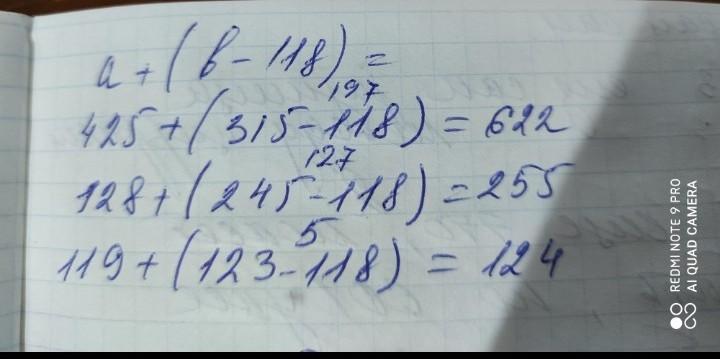 a + (в - 118) =
197
425 + (315 - 118) = 622
127
128 + (245 - 118) = 255
5
119 + (123 - 118) = 124
REDMI NOTE 9 PRO
AI QUAD CAMERA